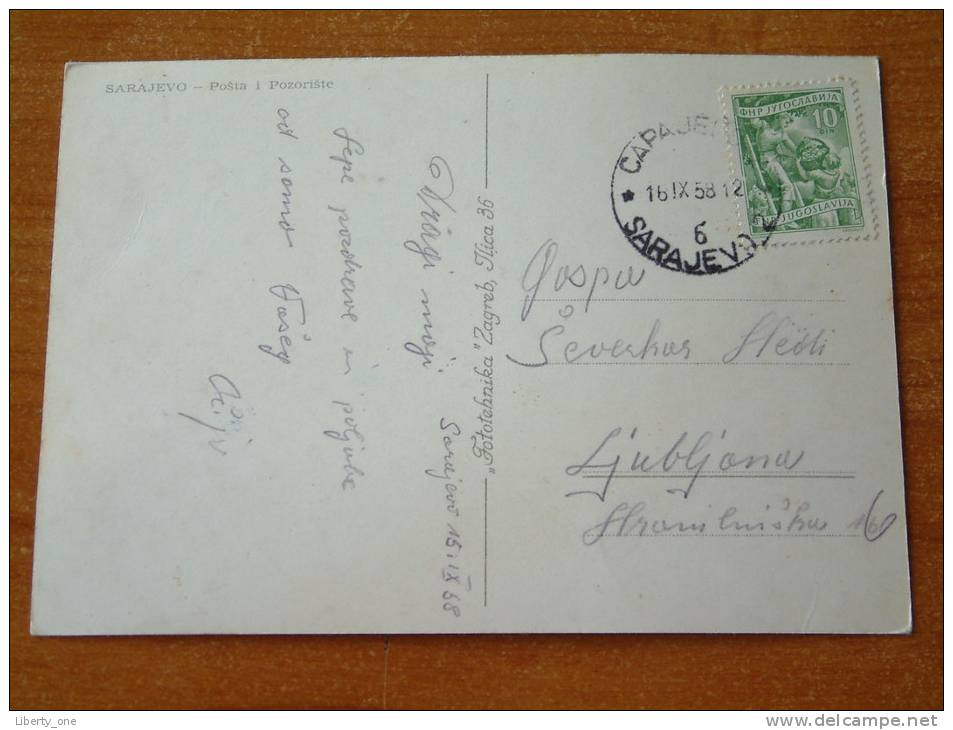 SARAJEVO – Pošta i Pozorište
Sarajevo 15. IX 58
Dragi moji
Lepe pozdrave in poljube
od samo Vašeg
"Fototehnika" Zagreb, Ilica 36
ФНР ЈУГОСЛАВИЈА
10
DIN
FNR JUGOSLAVIJA
САРАЈЕ
16 IX 58 12
6
SARAJEVO
Gospa
Ljubljana
16
Liberty_one
www.delcampe.net